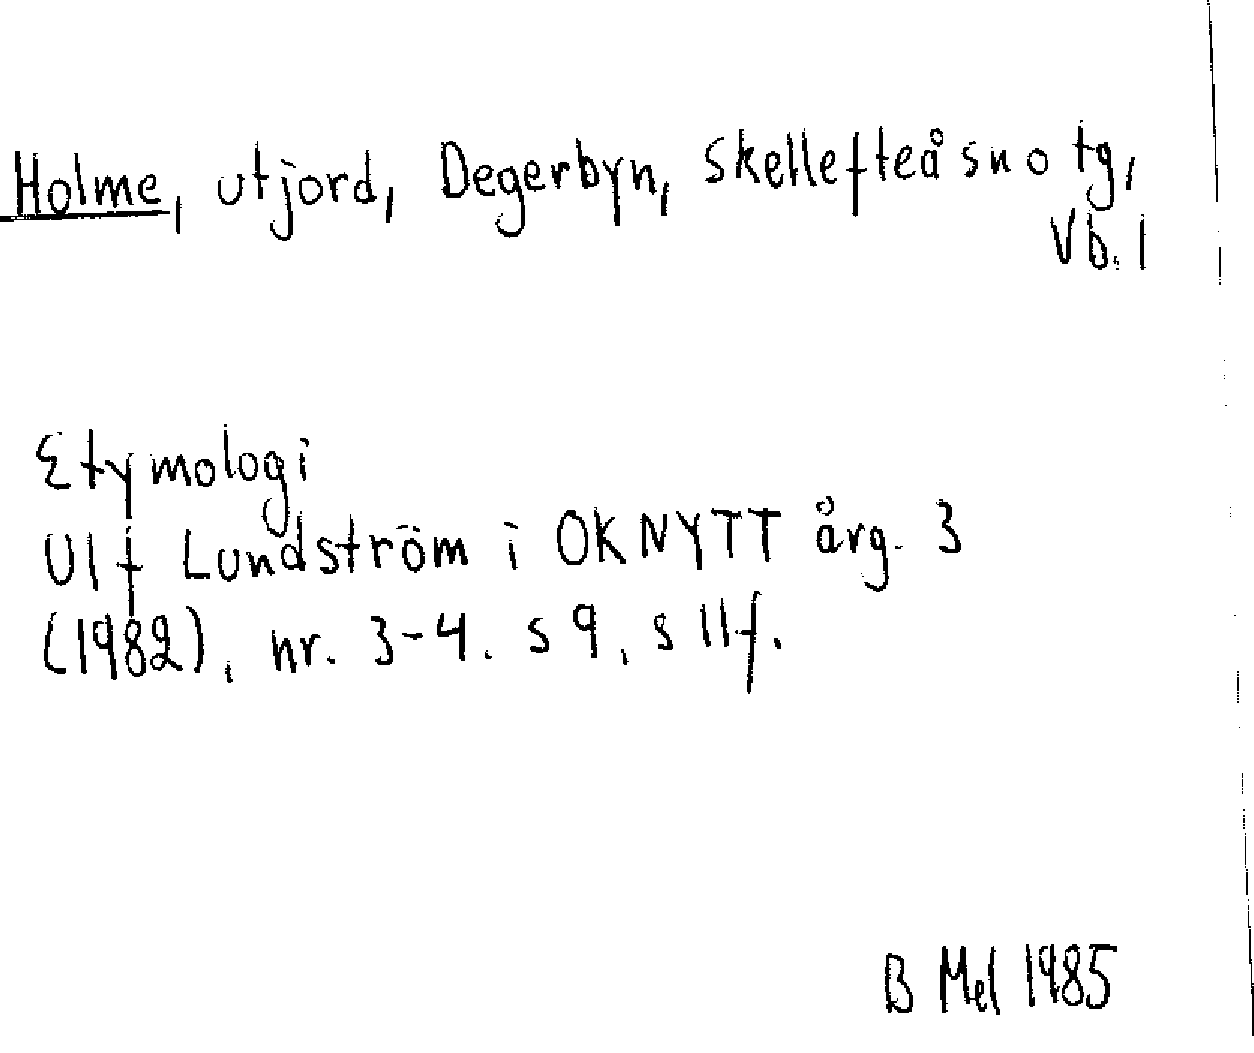 Holme, utjord, Degerbyn, Skellefteå sn o tg,
Vb. l
Etymologi
Ulf Lundström i OKNYTT årg. 3
(1982), nr. 3-4. s 9, s 11f.
B Mel 1985